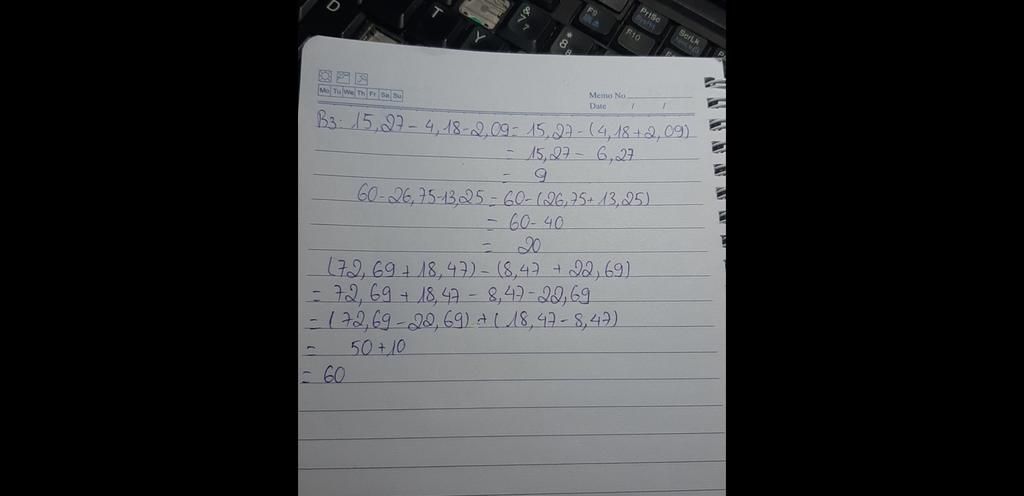 D
T
Y
&
7
*
8
F9
F10
PrtSc
ScrLk
Mo Tu We Th Fr Sa Su
Memo No
Date / /
B3: 15,27 - 4,18 - 2,09 = 15,27 - (4,18 + 2,09)
= 15,27 - 6,27
= 9
60 - 26,75 - 13,25 = 60 - (26,75 + 13,25)
= 60 - 40
= 20
(72,69 + 18,47) - (8,47 + 22,69)
= 72,69 + 18,47 - 8,47 - 22,69
= (72,69 - 22,69) + (18,47 - 8,47)
= 50 + 10
= 60